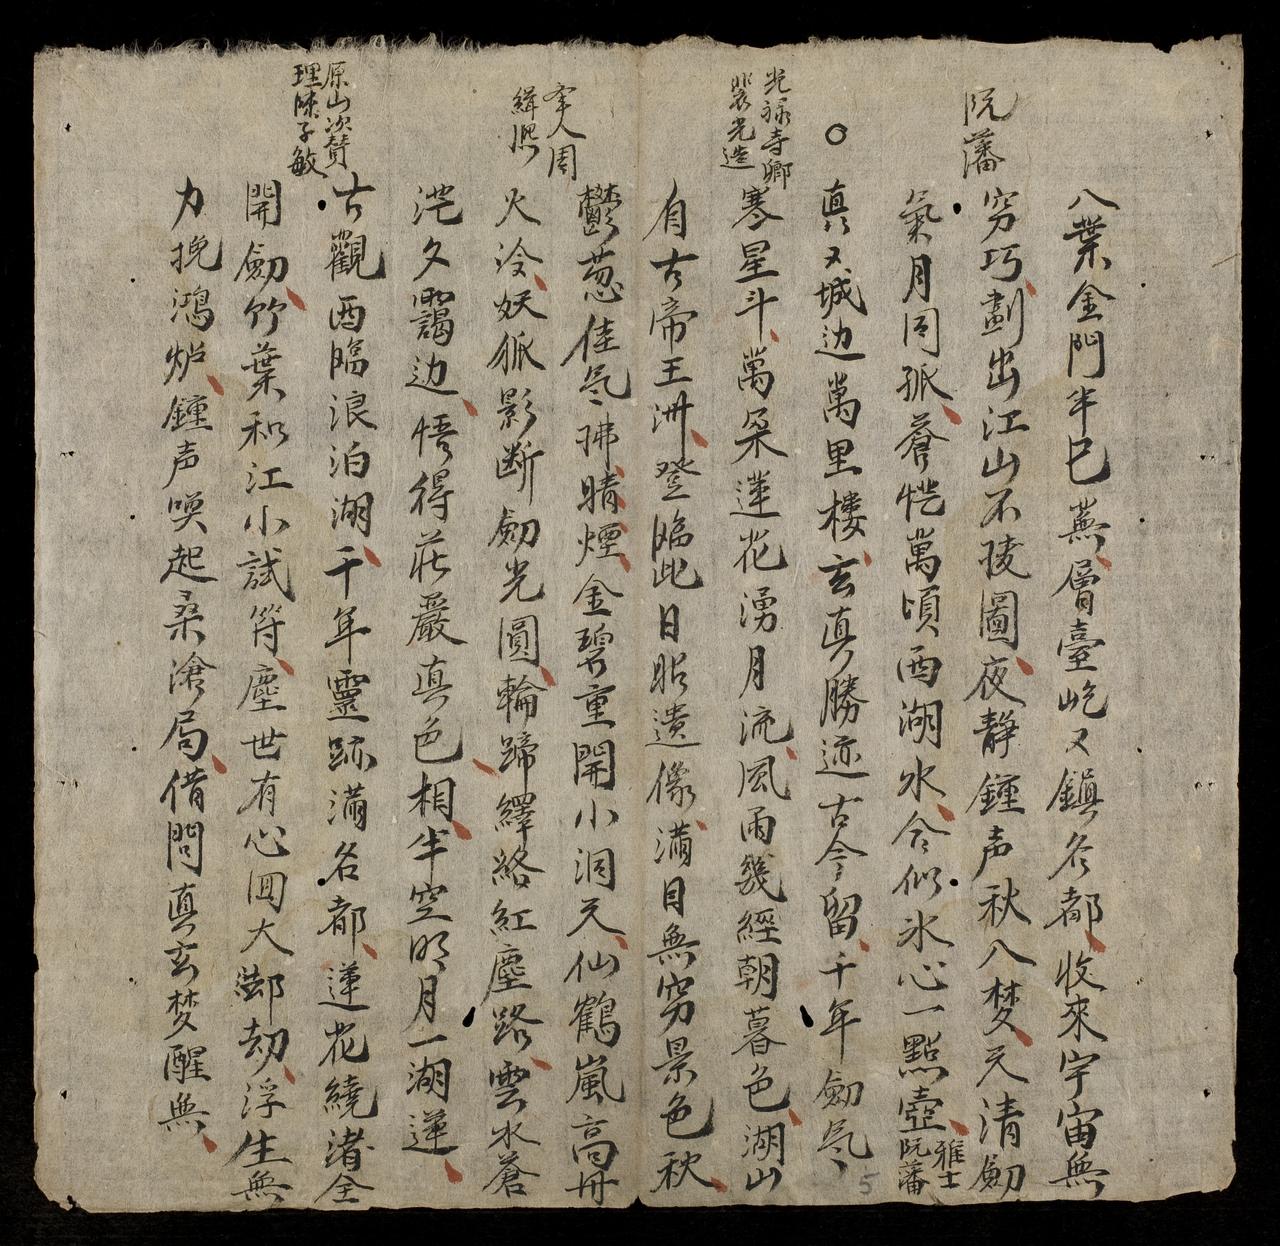 八葉金門半已蕪層臺屹又鎮名都收來宇宙無
阮藩
窮巧劃出江山不老圖夜静鍾声秋入梦天清劒
氣月同孤蒼茫萬頃西湖水合似氷心一點壺
雅士
阮藩
○
真又城边萬里樓玄真勝迹古今留千年劒气
光禄寺卿
裴光造
寒星斗萬朶蓮花湧月流風雨幾經朝暮色湖山
自古帝王洲登臨此日昭遺像滿目無窮景色秋
舉人周
緝熙
鬱葱佳气拂晴煙金碧重開小洞天仙鶴嵐高丹
火冷妖狐影断劒光圓輪蹄繹絡紅塵路雲水蒼
茫夕靄边悟得莊嚴真色相半空明月一湖蓮
原山次贊
理陳子敏
古觀西臨浪泊湖千年靈跡滿名都蓮花繞渚全
開劒竹葉和江小試符塵世有心囬大刼浮生無
力挽鴻炉鍾声喚起桑滄局借問真玄梦醒無
5